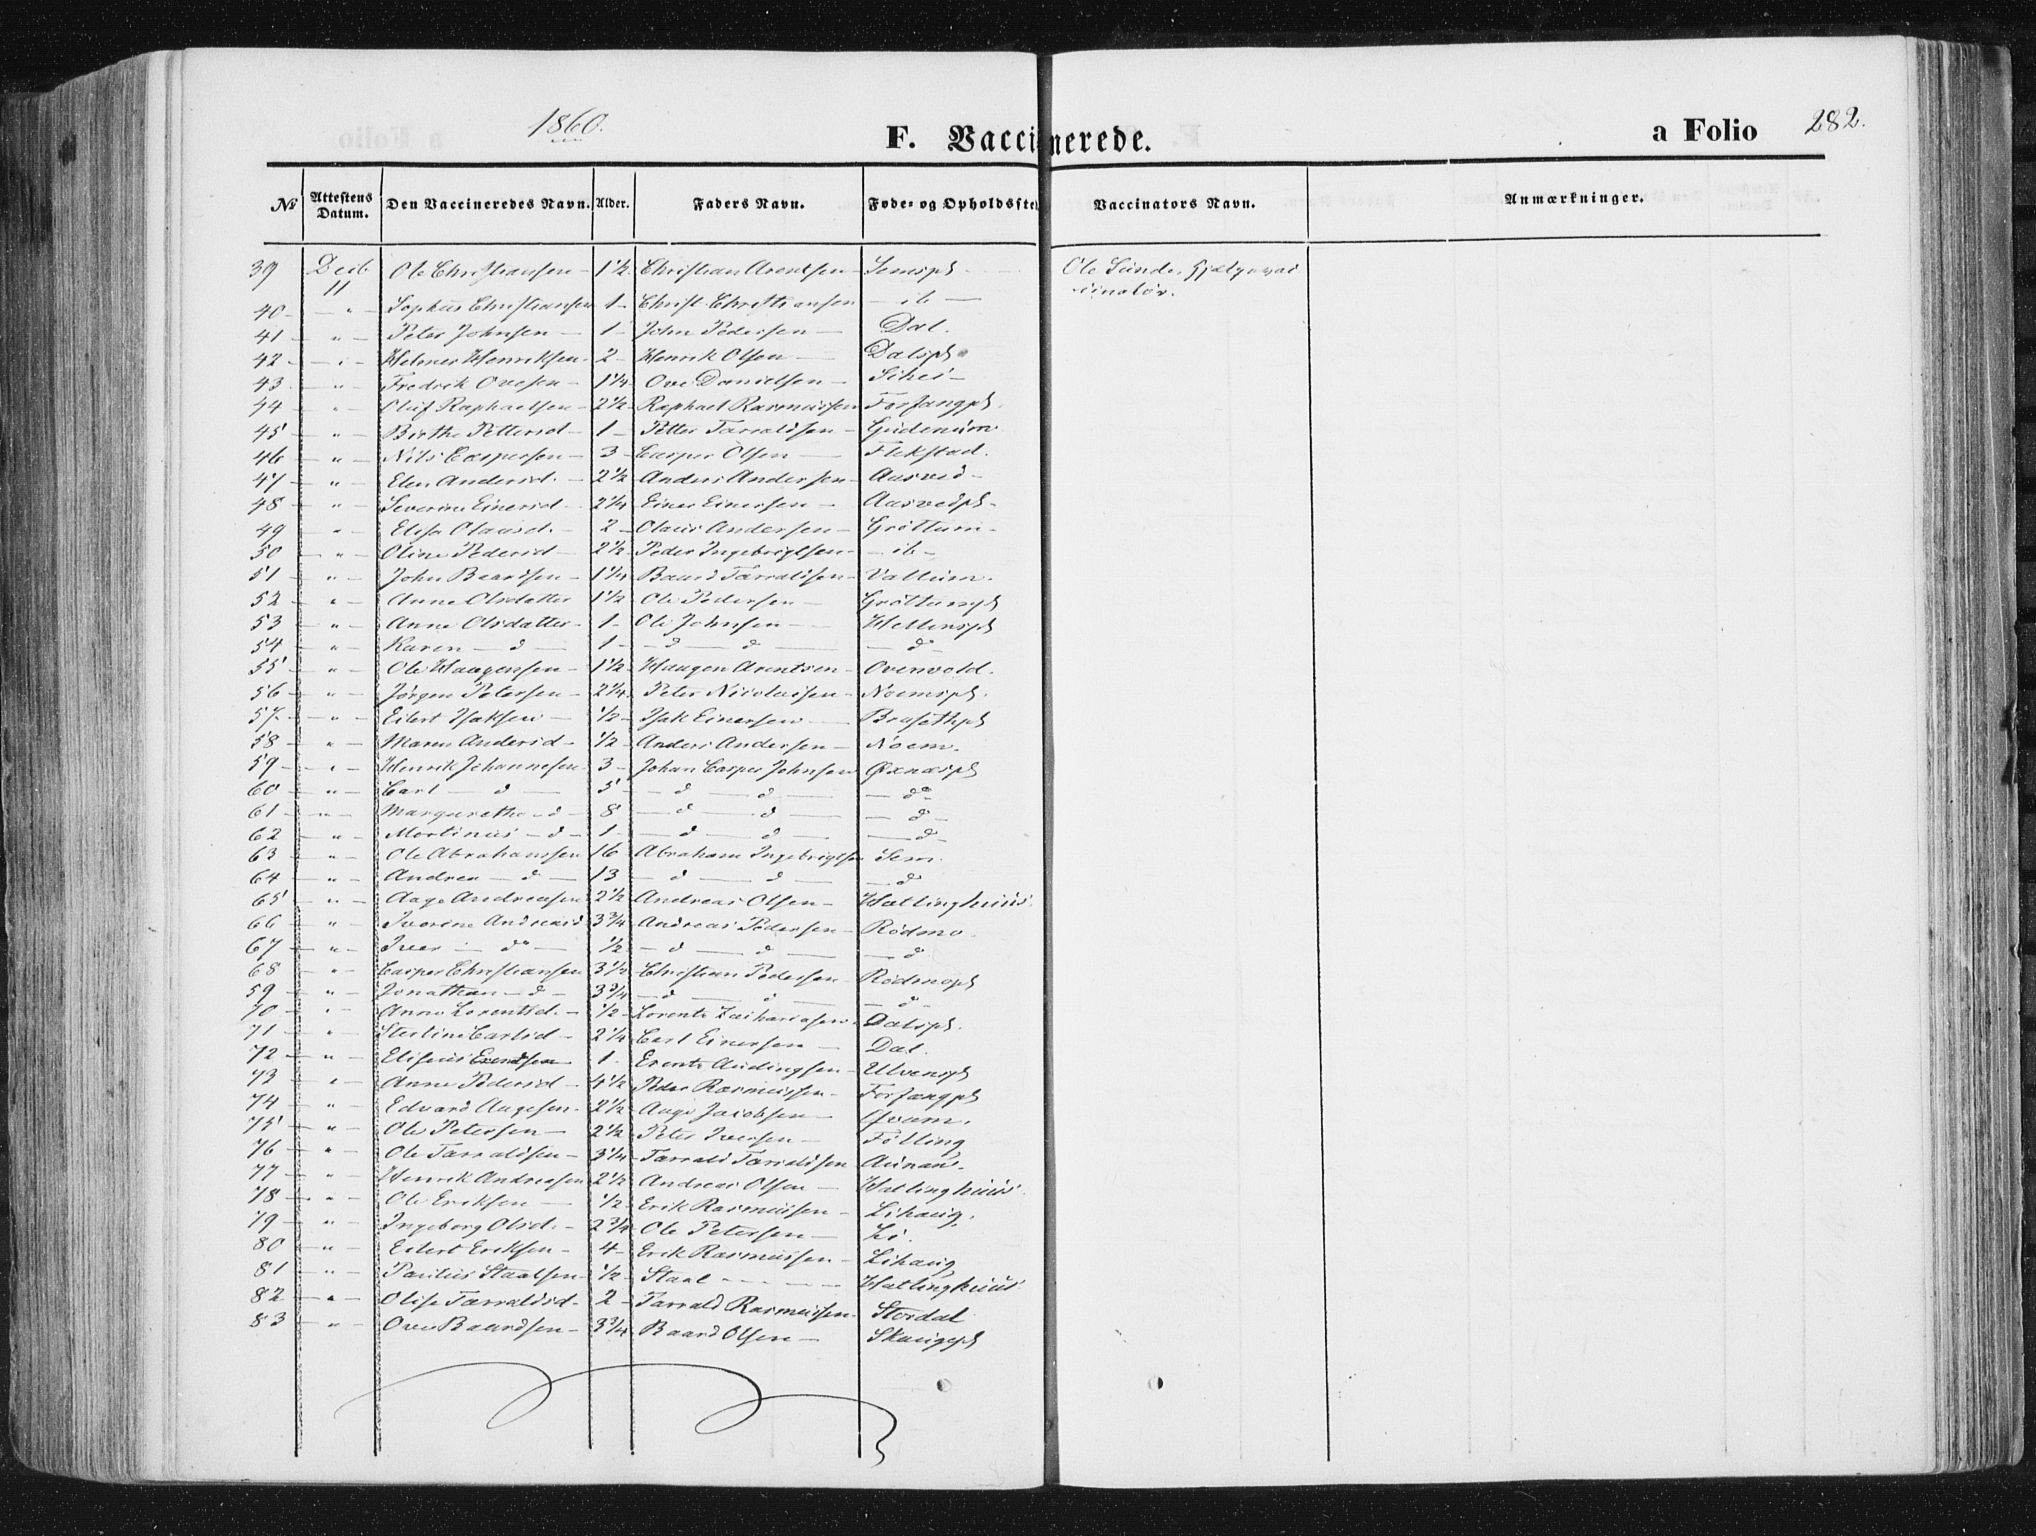 1860.
F. Vaccinerede.
a Folio 282.
№ Attestens Datum. Den Vaccineredes Navn. Alder. Faders Navn. Føde- og Opholdsste Vaccinators Navn. Anmærkninger.
39 Decb 11 Ole Christiansen 1½ Christian Arentsen Semspl Ole Sunde, Hjælpevac
cinatør.
40 " Sophus Christiansen 1 Christ. Christiansen ib
41 " Peter Johnsen 1 John Pedersen Dal.
42 " Helmer Henriksen 2 Henrik Olsen Dalspl
43 " Fredrik Ovesen 1¼ Ove Danielsen
44 " Oluf Raphaelsen 2½ Raphael Rasmussen Forfangpl.
45 " Birthe Pettersd 1 Petter Tarraldsen Gudenum
46 " Nils Caspersen 3 Casper Olsen Flekstad.
47 " Elen Andersd. 2½ Anders Andersen Aasved
48 " Severine Einersd 2¼ Einer Einersen Aasvedpl
49 " Elisa Olausd. 2 Olaus Andersen Grøttum
50 " Oline Pedersd 2½ Peder Ingebrigtsen ib
51 " John Baardsen 1¼ Baard Tarraldsen Vallum.
52 " Anne Olsdatter 1½ Ole Pedersen Grøttumpl
53 " Anne Olsdatter 1 Ole Johnsen Hellemspl
54 " Karen d 1 d d do
55 " Ole Haagensen 1½ Haagen Arentsen Overvold.
56 " Jørgen Petersen 2¼ Peter Nicolaisen Noemspl.
57 " Eilert Isaksen ½ Isak Einersen Brasethpl
58 " Maren Andersd ½ Anders Andersen Noem.
59 " Henrik Johannesen 3 Johan Casper Johnsen Øxnæspl
60 " Carl d 5 d d do
61 " Margarethe d 8 d d do
62 " Mortinus d 1 d d do
63 " Ole Abrahamsen 16 Abraham Ingebrigtsen Sem.
64 " Andrea d 13 d d do
65 " Aage Andreasen 2½ Andreas Olsen Hallinghuus
66 " Iverine Andreasd 3¾ Andreas Pedersen Rødmo.
67 " Iver do ½ d d d
68 " Casper Christiansen 3½ Christian Pedersen Rødmopl
59 " Jonathan d 3¾ d d do
70 " Anne Lorentsd. ½ Lorents Zachariasen Dalspl.
71 " Carlsd 2¼ Carl Einersen Dal.
72 " Eliseus Erentsen 1 Erents Audingsen Ulvenspl
73 " Anne Pedersd 4½ Peder Rasmussen Forfangpl
74 " Edvard Aagesen 2½ Aage Jacobsen Qvam.
75 " Ole Petersen 2½ Peter Iversen Følling
76 " Ole Tarraldsen 3¼ Tarrald Tarraldsen Aunan.
77 " Henrik Andreasen 2½ Andreas Olsen Hallinghuus
78 " Ole Eriksen ½ Erik Rasmussen Lihaug.
79 " Ingeborg Olsd. 2¾ Ole Petersen Li.
80 " Eilert Eriksen 4 Erik Rasmussen Lihaug
81 " Paulus Staalsen ½ Staal Hallinghuus
82 " Olise Tarraldsd. 2 Tarrald Rasmussen Stordal
83 " Ove Baardsen 3¾ Baard Olsen Skaugepl